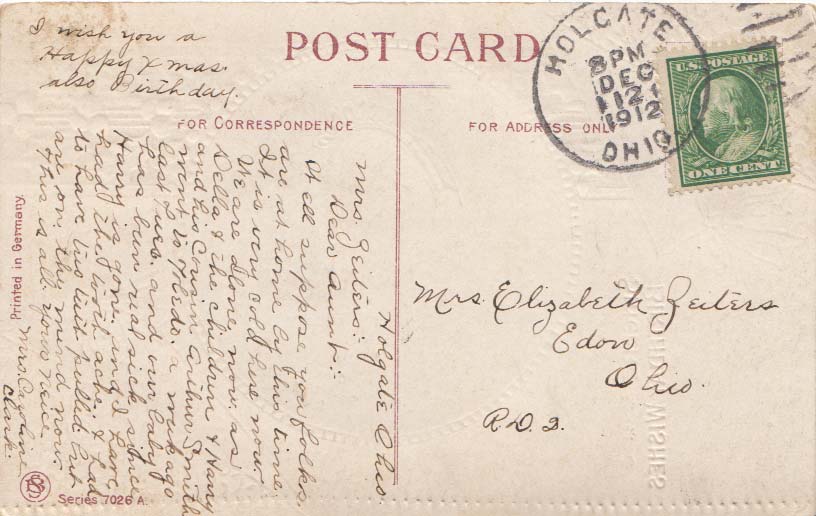 I wish you a
Happy Xmas.
also Birthday.
POST CARD
FOR CORRESPONDENCE
FOR ADDRESS ONLY
HOLGATE
8 PM
DEC
12
1912
OHIO
U.S. POSTAGE
ONE CENT
Holgate Ohio.
Mrs. Zeiters:-
Dear Aunt:-
Well suppose you folks.
are at home by this time.
It is very cold here now
We are alone now, as
Della & the children & Harry
and his Cousin Arthur Smith
went to Toledo. a week ago
last Tues. and our baby
has been real sick since
Harry is gone. and I have
had the tooth ache, & had
to have two teeth pulled but
are on they mend now.
This is all yours neice
Mrs. Caroline
Clark.
Mrs. Elizabeth Zeiters
Edon
Ohio.
R.D. 2.
WISHES
Printed in Germany.
Series 7026 A.